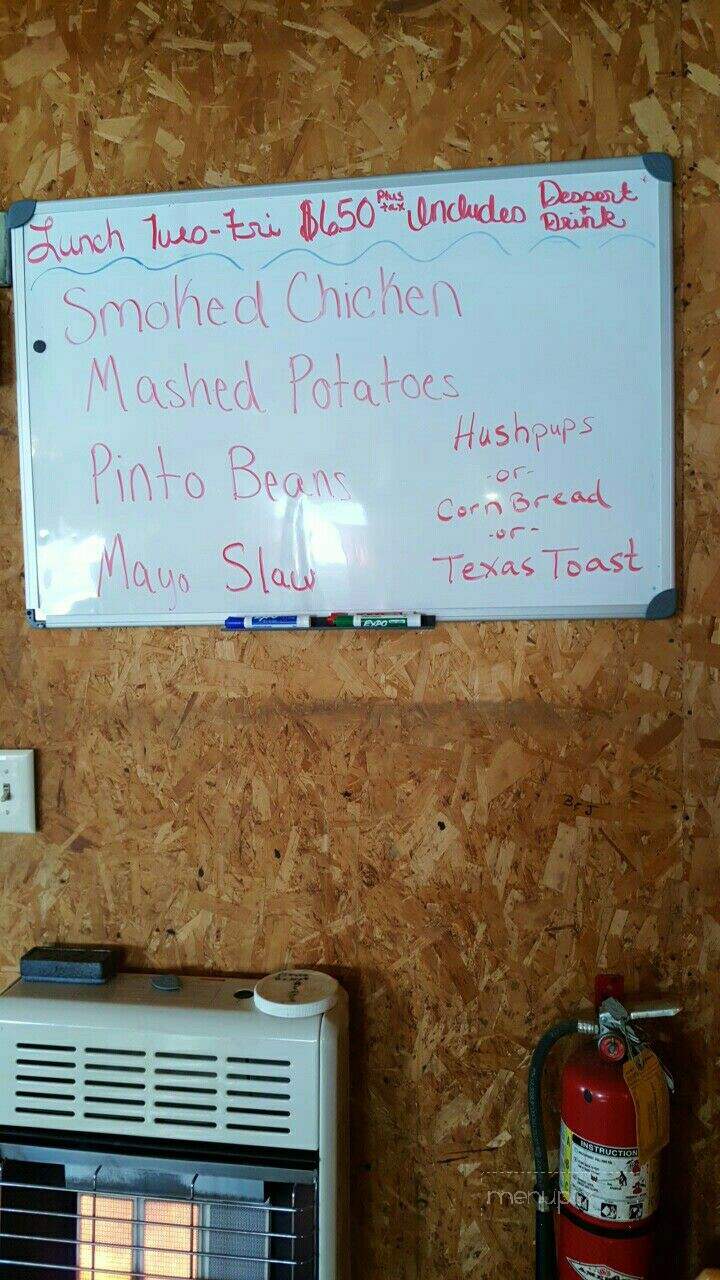 Lunch Tues-Fri $650 plus tax Includes Dessert + Drink
Smoked Chicken
Mashed Potatoes
Pinto Beans
Mayo Slaw
Hushpups
-or-
Corn Bread
-or-
Texas Toast
EXPO
INSTRUCTION
menupix